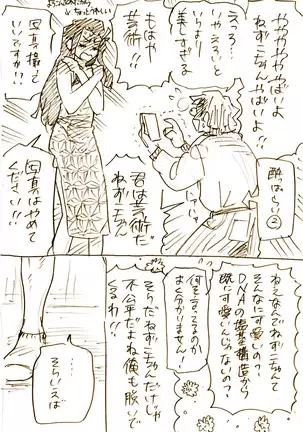 ややややばいよ
ねずこちゃんやばいよ
えっろ…
いやえろいと
いうより
美しすぎる
もはや
芸術!!
写真撮って
いいですか!?
酔っぱらい②
君は芸術だ
ねずこちゃん
写真はやめて
ください!!!
ねえなんでねずこちゃんって
そんなに可愛いの?
DNAの塩基構造から
既に可愛いんじゃないの?
何を言ってるのか
よく分かりません!
そうだねずこちゃんだけじゃ
不公平だよね俺も脱いで
くるわ!!
……
そういえば